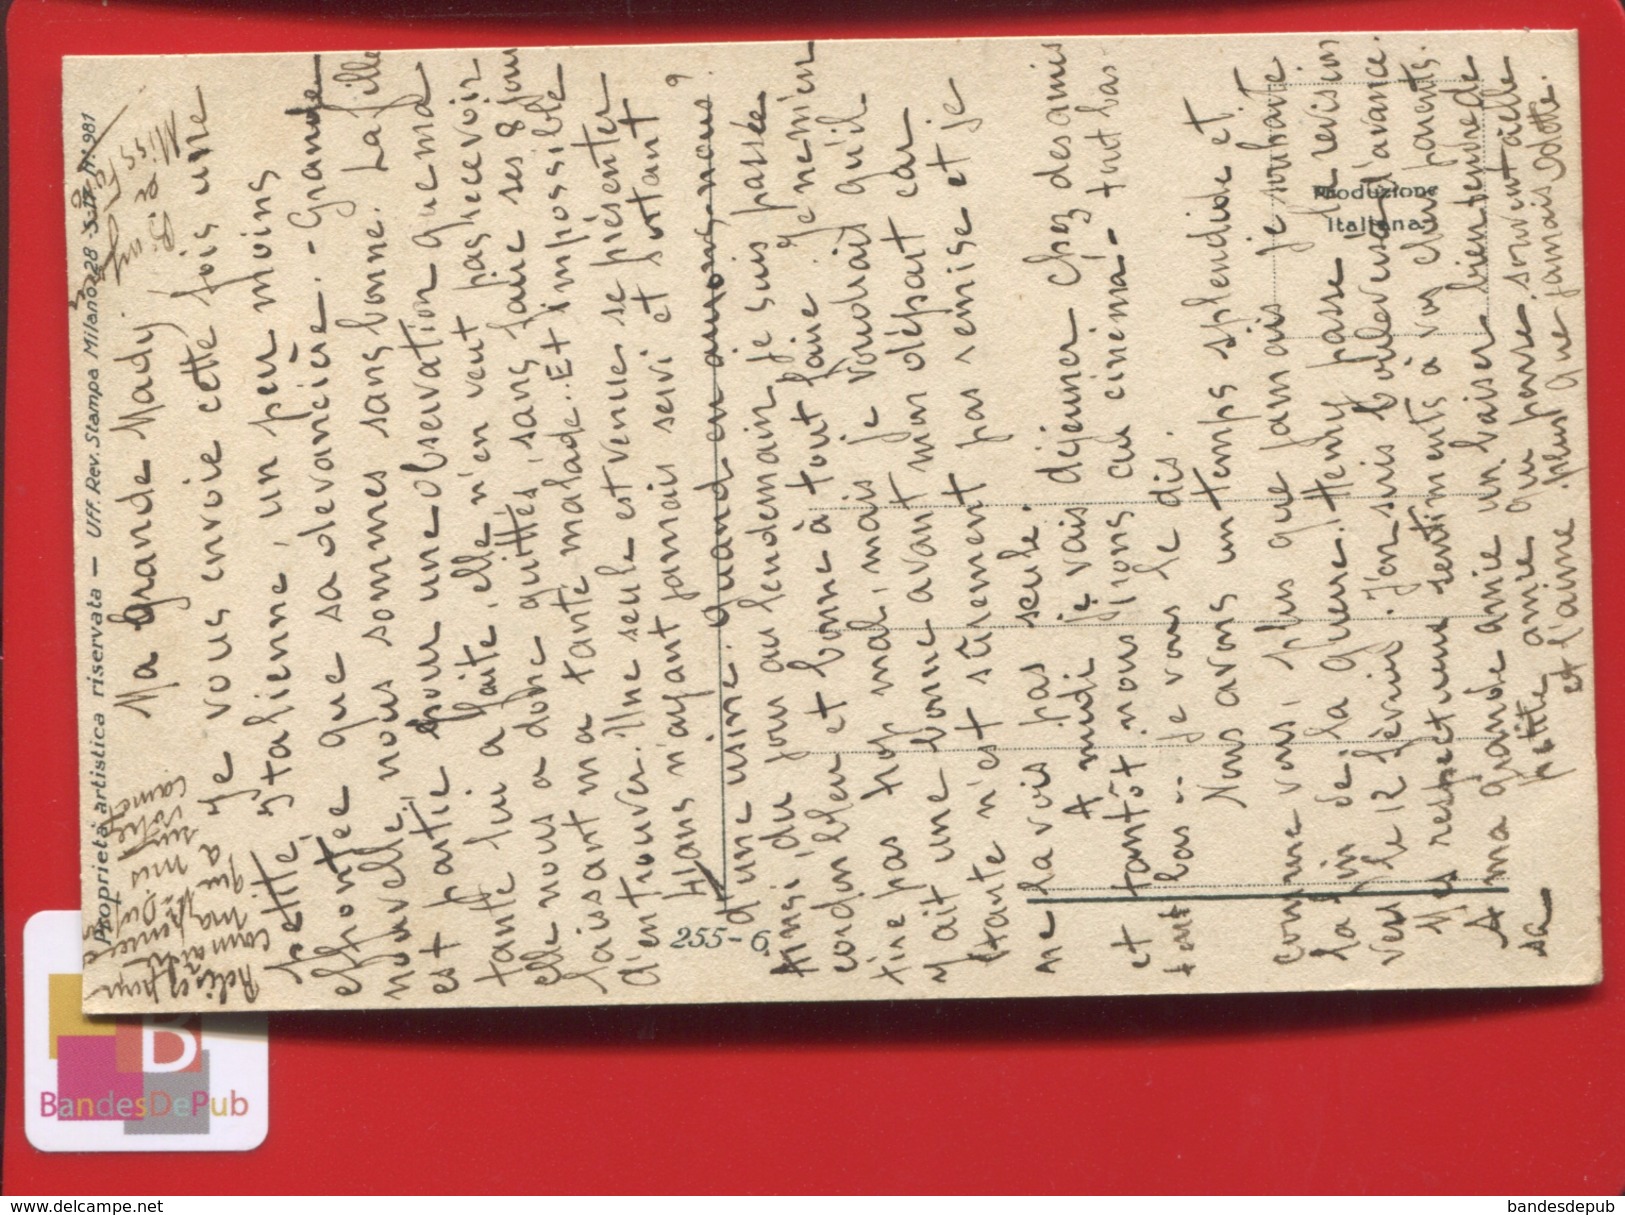 Ma Grande Mady.
Je vous envoie cette fois une
petite Italienne, un peu moins
effrontée que sa devancière. - Grande
nouvelle, nous sommes sans bonne. La fille
est partie pour une observation que ma
tante lui a faite, elle n'en veut pas recevoir
elle nous a donc quittés, sans faire ses 8 jours
laissant ma tante malade. Et impossible
d'en trouver. Une seule est venue se présenter
Hans n'ayant jamais servi et sortant
d'une usine. quand en aurons-nous ?
Ainsi, du jour au lendemain je suis passée
cordon bleu et bonne à tout faire. Je ne m'en
tire pas trop mal, mais je voudrais qu'il
y ait une bonne avant mon départ car
tante n'est sûrement pas remise et je
ne la vois pas seule.
A midi je vais déjeuner chez des amis
et tantôt nous irons au cinéma - tout bas -
tout bas .. je vous le dis.
Nous avons un temps splendide et
comme vous, plus que jamais je souhaite
la fin de la guerre. Henry passe la revision
vers le 12 février. J'en suis bouleversée d'avance.
Mes respectueux sentiments à vos chers parents.
A ma grande amie un baiser bien tendre de
sa petite amie qui pense souvent à elle
et l'aime plus que jamais Odette.
Proprietà artistica riservata — Uff. Rev. Stampa Milano
981
255-6
Produzione
Italiana
B
BandesDePub
www.delcampe.net
bandesdepub